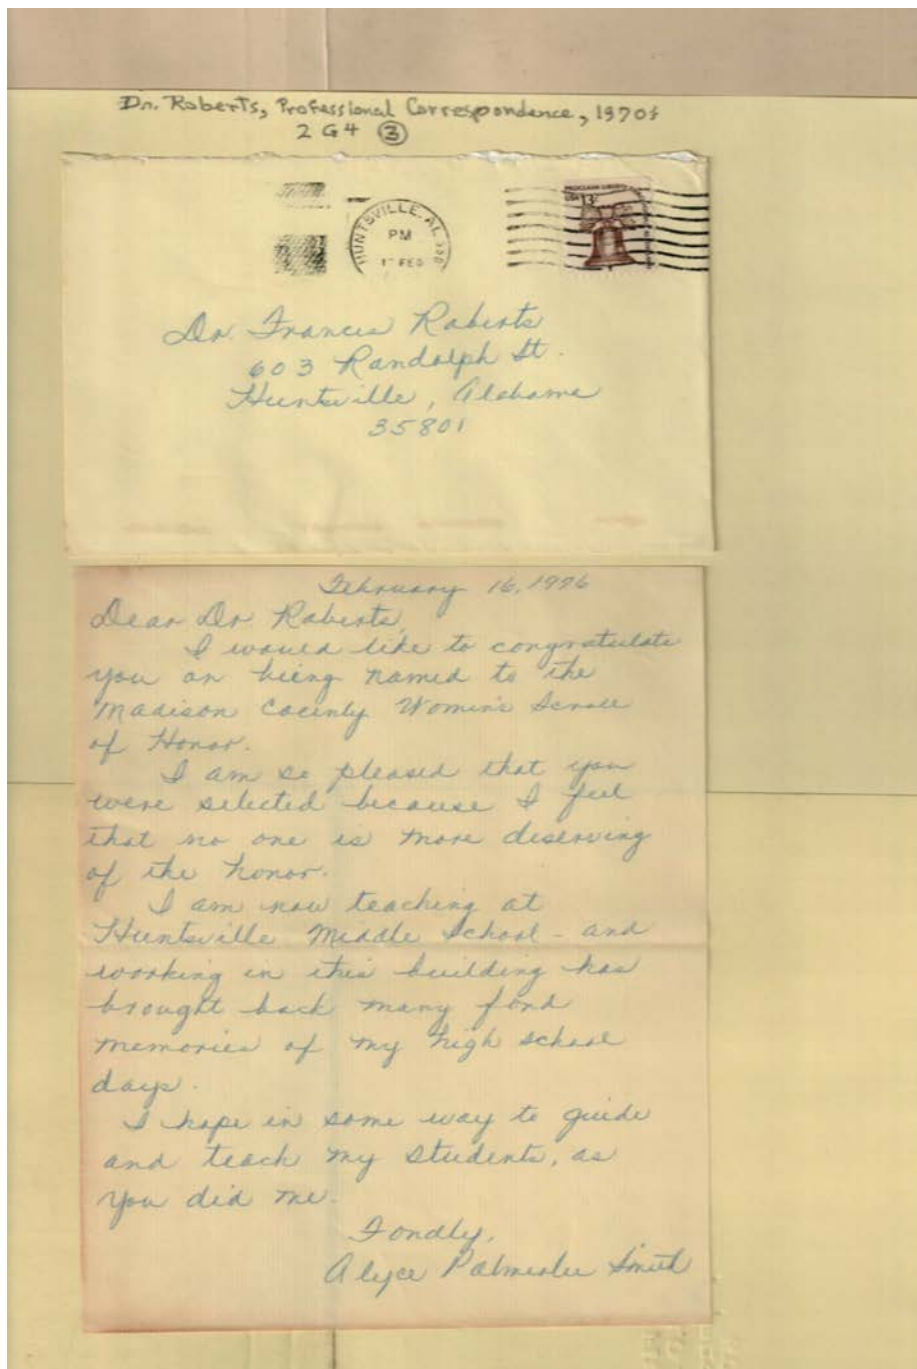 Dr. Roberts, Professional Correspondence, 1970s
2 G4 ③
HUNTSVILLE, AL
PM
FEB
USA 13
Dr. Frances Roberts
603 Randolph St.
Huntsville, Alabama
35801
February 16, 1976
Dear Dr Roberts,
I would like to congratulate
you on being named to the
Madison County Women's Scroll
of Honor.
I am so pleased that you
were selected because I feel
that no one is more deserving
of the honor.
I am now teaching at
Huntsville Middle School - and
working in this building has
brought back many fond
memories of my high school
days.
I hope in some way to guide
and teach my students, as
you did me.
Fondly,
Alyce Smith